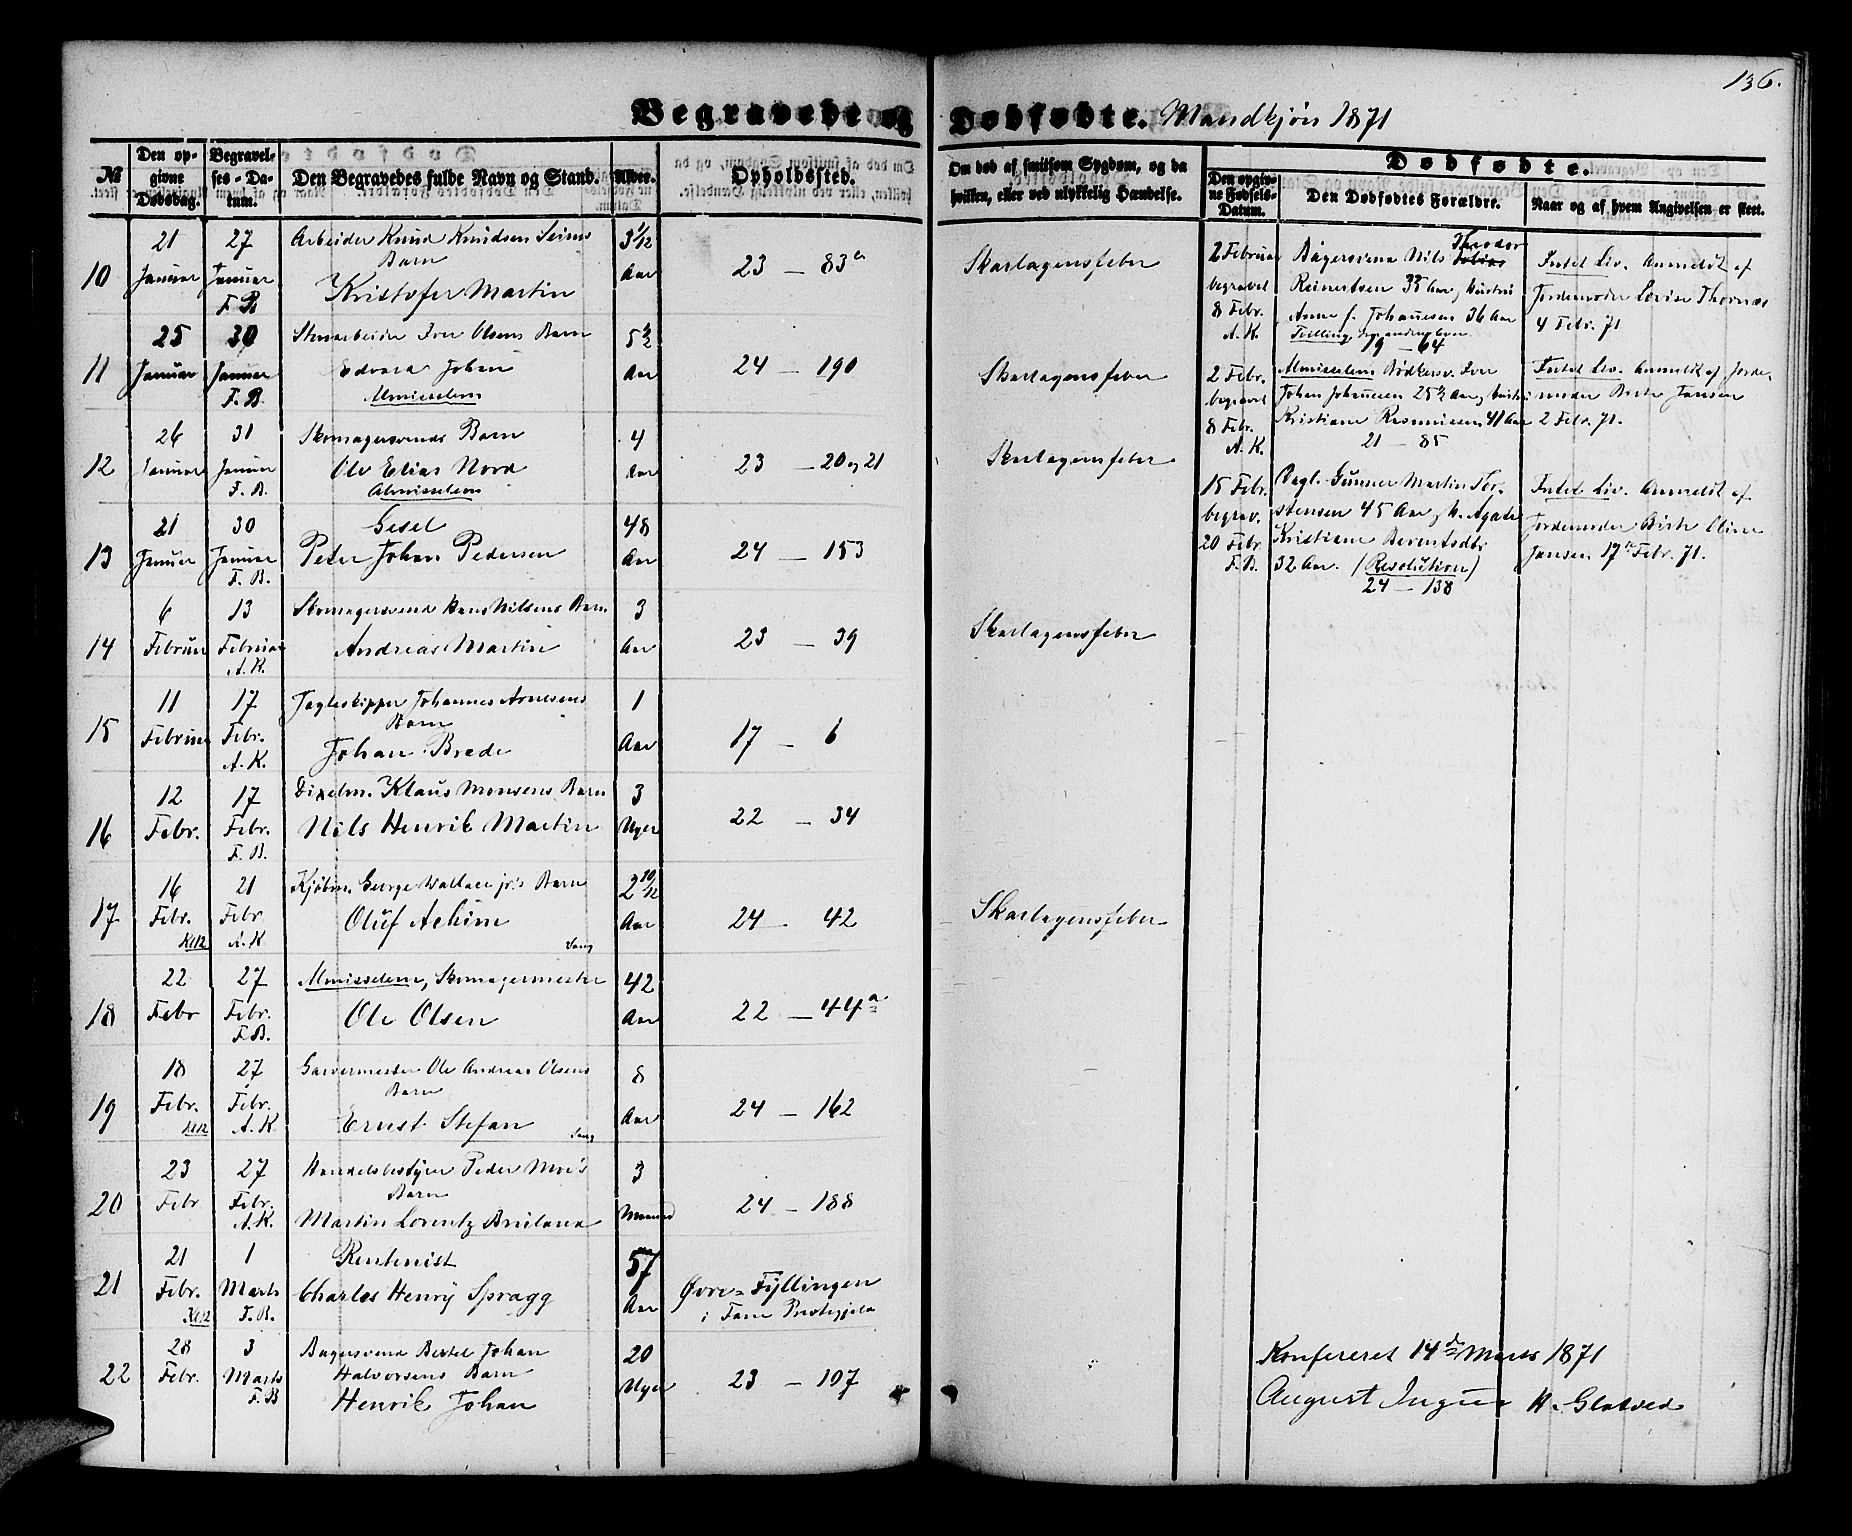 136.
Begravede og Dødfødte. Mandkjøn 1871
№
Den opgivne Dødsdag.
Begravelses-Datum.
Den Begravedes fulde Navn og Stand.
Alder.
Opholdssted.
Om død af smitsom Sygdom, og da hvilken, eller ved ulykkelig Hændelse.
Dødfødte.
Den opgivne Fødsels-Datum.
Den Dødfødtes Forældre.
Naar og af hvem Angivelsen er skeet.
10
21 Januar
27 Januar F. B.
Arbeider Knud Knudsen Seims
Barn
Kristofer Martin
3 1/12 Aar
23 — 83a
Skarlagensfeber
11
25 Januar
30 Januar F. B.
Stenarbeider Iver Olsens Barn
Edvard Johan
Almisselem
5 1/2 Aar
24 — 190
Skarlagensfeber
12
26 Januar
31 Januar F. B.
Skomagersvends Barn
Ole Elias Nord
Almisselem
4 Aar
23 — 20 og 21
Skarlagensfeber
13
21 Januar
30 Januar F. B.
Gesel
Peter Johan Pedersen
48 Aar
24 — 153
14
6 Februar
13 Februar A. K.
Skomagersvend Hans Nilsens Barn
Andreas Martin
3 Aar
23 — 39
Skarlagensfeber
15
11 Februar
17 Febr. A. K.
Jagteskipper Johannes Arnesens
Barn
Johan Brede
1 Aar
17 — 6
16
12 Febr.
17 Febr. F. B.
Dixelm. Klaus Monsens Barn
Nils Henrik Martin
3 Uger
22 — 34
17
16 Febr.
Kl 12
21 Febr. A. K
Kjøbm. George Wallace jr's Barn
Oluf Achim
Sang
2 10/12 Aar
24 - 42
Skarlagensfeber
18
22 Febr
27 Febr. F. B.
Almisselem, Skomagermester
Ole Olsen
42 Aar
22 — 44a
19
18 Febr.
Kl 12
27 Febr. A. K
Garvermester Ole Andreas Olsens
Barn
Ernst Stefan
Sang
8 Aar
24 — 162
20
23 Febr
27 Febr. A. K.
Handelsbestyrer Peder Moe's
Barn
Martin Lorentz
3 Maaned
24 — 188
21
21 Febr.
Kl 12
1 Marts F. B.
Rentenist
Charles Henry Spragg
57 Aar
Øvre-Fyllingen
i Fane Præstegjeld
22
28 Febr.
3 Marts F. B
Bagersvend Bertel Johan
Halvorsens Barn
Henrik Johan
20 Uger
23 — 107
2 Februar
begravet
8 Febr.
A. K.
Bagersvend Nils Theodor
Reinertsen 35 Aar, Hustru
Anne f. Johannesen 36 Aar
Tvilling
19 — 64
Intet Liv. Anmeldt af
Jordemoder Lovise Thornæs
4 Febr. 71
2 Febr.
begravet
8 Febr.
A. K.
Almisselem Bødkersv. Iver
Johan Johannesen 25 1/2 Aar, Hustru
Kristiane Rasmussen 41 Aar
21 — 85
Intet Liv. Anmeldt af Jorde-
moder Birte Jansen
2 Febr. 71.
15 Febr.
begrav.
20 Febr
F. B.
Dagl. Gunner Martin Tor-
stensen 45 Aar, h. Agate
Kristiane Berentsdtr
32 Aar. (Resolution)
24 — 138
Intet Liv. Anmeldt af
Jordemoder Birte Oline
Jansen 17de Febr. 71.
Konfereret 14de Marts 1871
August H. Glatved